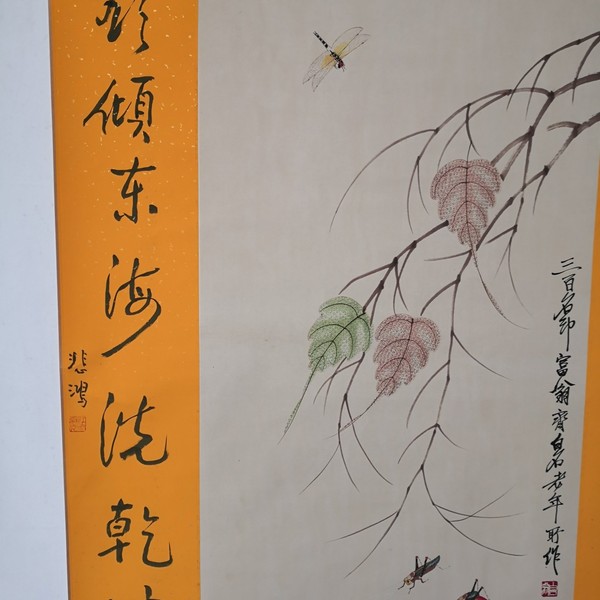 三百石印富翁齊白石老年所作
傾东海洗乾
悲鴻